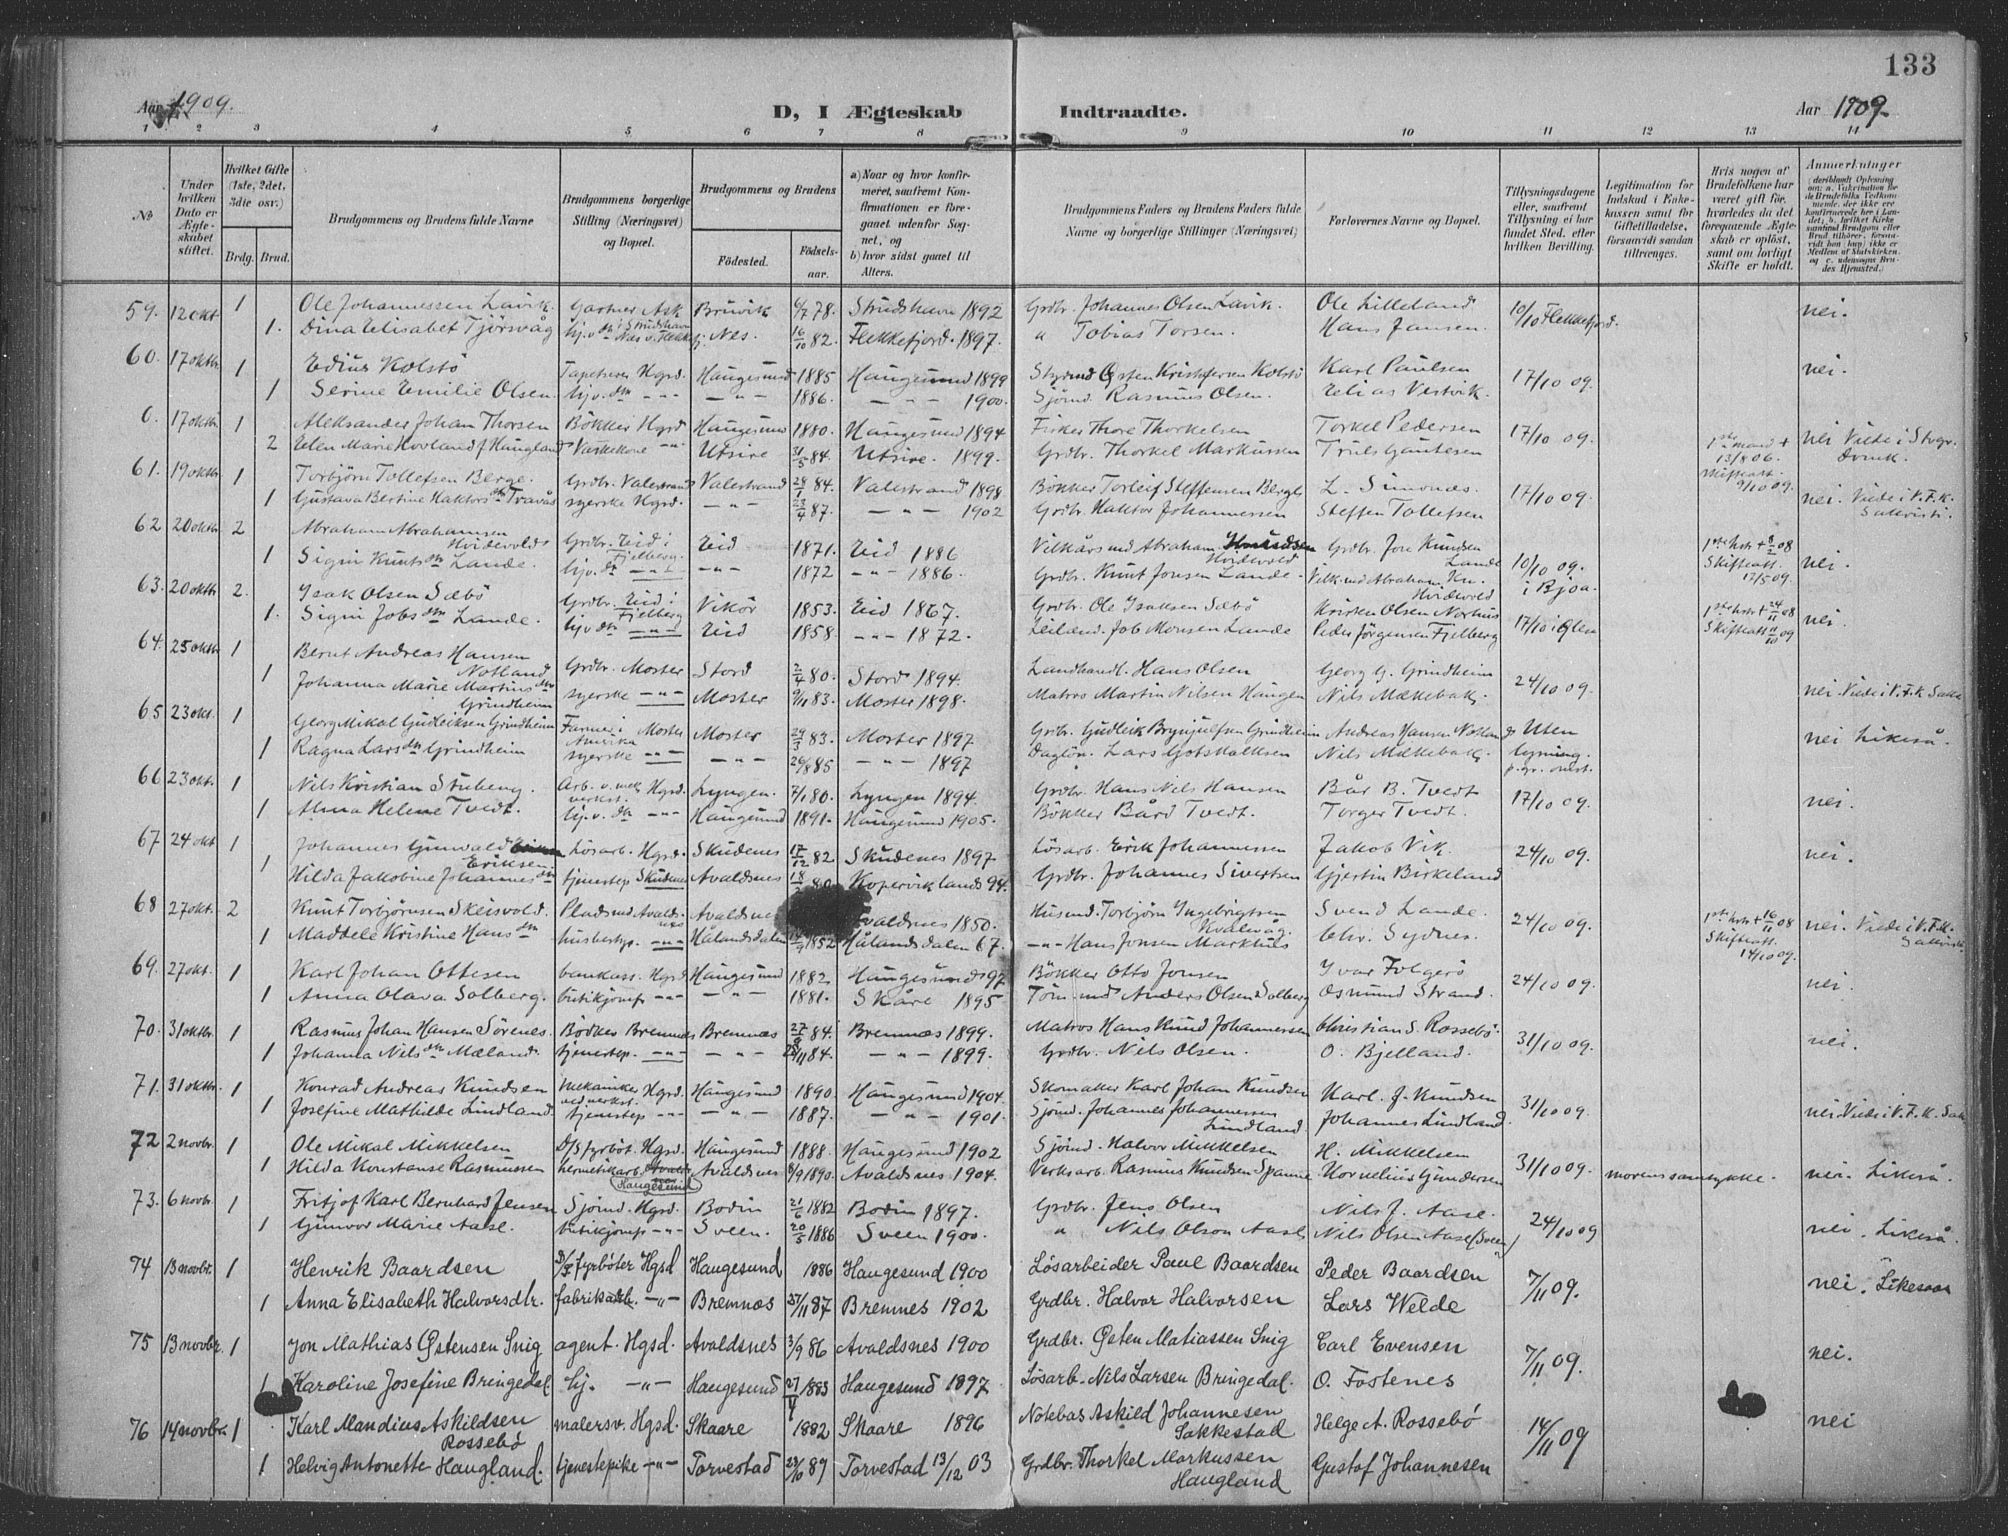 133
Aar 1909. D, I Ægteskab Indtraadte. Aar 1909.
1 2 3 4 5 6 7 8 9 10 11 12 13 14
No
Under hvilken Dato er Ægteskabet stiftet.
Hvilket Gifte (1ste, 2det, 3die osv.)
Brdg. Brud.
Brudgommens og Brudens fulde Navne
Brudgommens borgerlige Stilling (Næringsvei) og Bopæl.
Brudgommens og Brudens
Fødested. Fødselsaar.
a) Naar og hvor konfirmeret, saafremt Konfirmationen er foregaaet udenfor Sognet, og
b) hvor sidst gaaet til Alters.
Brudgommens Faders og Brudens Faders fulde Navne og borgerlige Stillinger (Næringsvei)
Forlovernes Navne og Bopæl.
Tillysningsdagene eller, saafremt Tillysning ei har fundet Sted, efter hvilken Bevilling.
Legitimation for Indskud i Enkekassen samt for Giftetilladelse, forsaavidt saadan tiltrænges.
Hvis nogen af Brudefolkene har været gift før, hvorledes da det foregaaende Ægteskab er opløst, samt om lovligt Skifte er holdt.
Anmerkninger
59. 12 okt 1 Ole Johannessen Lavik. Gartner Ask Bruvik 6/7 78. Strudshavn 1892 Grdbr. Johannes Olsen Lavik. Ole Lilleland 10/10 Flekkefjord. nei.
1. Dina Elisabet Tjörsvåg hj. v. dn i Strudshavn Næs v. Flekkefj. Nes. 16/10 82. Flekkefjord. 1897. " Tobias Torsen. Hans Jansen.
60. 17 oktbr 1 Edius Kolstö Tapetserer Hgsd. Haugesund 1885 Haugesund 1899 Styrmd Østen Kristofersen Kolstö Karl Paulsen 17/10 09. nei.
1 Serine Emilie Olsen. hj. v. dn - " - - " - 1886. - " - 1900. Sjömd. Rasmus Olsen. Elias Vestvik.
6. 17 oktbr 1 Aleksander Johan Thorsen Bökker Hgsd Haugesund 1880. Haugesund 1894 Fisker Thore Thorkelsen Torkel Pedersen 17/10 09. 1ste mand + 13/8 06. Skifteatt. 9/10 09. nei Viede i Stvgr. Domk.
2 Elen Marie Hovland f. Haugland Vaskekone - " - Utsire 31/5 84. Utsire. 1899. Grdbr. Thorkel Markussen Truls Gautesen
61. 19 oktbr 1 Torbjörn Tollefsen Berge. Grdbr. Valestrand Valestrand 28/1 84. Valestrand 1898 Bökker Torleif Steffensen Berge L. Simonæs. 17/10 09. nei. Viede i V. F. K. Sakristi.
1 Gustava Bertine Haktorsdn Travås syerske Hgsd. - " - 23/4 87. - " - 1902 Grdbr. Haktor Johannessen Steffen Tollefsen
62 20 oktbr. 2 Abraham Abrahamsen Hvidevolds Grdbr. Eid i Fjelberg. Eid 1871. Eid 1886 Vilkårsmd Abraham Hvidevold Grdbr. Jon Knudsen Lande 10/10 09. i Bjoa. 1ste kone + 8/2 08 Skifteatt. 17/5 09. nei.
1 Sigrin Knuts dn Lande. hj. v. dn - " - - " - 1872 - " - 1886. Grdbr. Knut Jonsen Lande. Vilk. md Abraham Kn. Hvidevold
63. 20 oktbr 2. Isak Olsen Sæbö Grdbr. Eid i Fjelberg Vikör 1853. Eid 1867. Grdbr. Ole Isaksen Sæbö Kristen Olsen Norhus 17/10 i Ølen 1ste kone + 24/11 08 Skifteatt 11/10 09 nei.
1. Sigrin Jobs dn Lande. hj. v. dn - " - Eid 1858. - " - 1872. Leilænd. Job Monsen Lande Peder Jörgensen Fjelberg
64. 25 oktbr 1 Bernt Andreas Hansen Notland Grdbr. Moster Stord 2/4 80. Stord 1894. Landhandl. Hans Olsen Georg G. Grindheim 24/10 09. nei. Viede i V. F. K. Sakr.
1 Johanna Marie Martins dn Grindheim syerske - " - Moster 9/11 83. Moster 1898. Matros Martin Nilsen Haugen Nils Mækebak.
65 23 okt. 1 Georg Mikal Gudleiksen Grindheim Farmer i Amerika Moster Moster 29/3 83. Moster 1897 Grdbr. Gudleik Brynjulfsen Grindheim Andreas Hansen Notland Uten lysning nei Likeså.
1 Ragna Lars dn Grindheim syerske - " - - " - 26/8 85 - " - 1897 Daglön. Lars Gotskalksen Nils Mækebak.
66 23 okt. 1 Nils Kristian Stuberg. Arb. v. mek verkst. Hgsd. Lyngen. 7/1 80. Lyngen 1894. Grdbr. Hans Nils Hansen Bår B. Tvedt 17/10 09. nei.
1 Alma Helene Tvedt. hj. v. dn - " - Haugesund 1891. Haugesund 1905. Bökker Bård Tvedt. Torger Tvedt.
67 24 okt 1 Johannes Gunvald Eriksen Lösarb. Hgsd. Skudenes 17/12 82 Skudenes 1897 Lösarb. Erik Johannessen Jakob Vik. 24/10 09. nei.
1 Hilda Jakobine Johannes dn tjenestep Skudenes Avaldsnes 18/ 80 Kopervik lands 94. Grdbr. Johannes Sivertsen Gjertin Birkeland
68 27 okt. 2 Knut Torbjörnsen Skeisvold. Pladsmd Avaldsnes Avaldsnes Avaldsnes 1850. Husmd. Torbjörn Ingebrigtsen Kvalevåg. Svend Lande. 24/10 09. 1ste kone + 16/11 08 Skifteatt. 14/10 09. nei. Viede i V. F. K. Sakristi
1 Maddele Kristine Hans dn husbestyr. - " - Hålandsdalen 1852 Hålandsdalen 67. - " - Hans Jonsen Markhus Chr. Sydnes.
69. 27 okt. 1 Karl Johan Ottesen bankass. Hgsd Haugesund 1882 Haugesund 97. Bökker Otto Jonsen Ivar Folgerö 24/10 09. nei.
1 Anna Olava Solberg. butikjomf - " - - " - 1881. Skåre 1895 Tömmd Anders Olsen Solberg Osmund Strand.
70. 31 oktbr. 1 Rasmus Johan Hansen Sörenes. Bödker Bremnes Bremnæs 27/ 84. Bremnæs 1899. Matros Hans Knud Johannessen Christian S. Rossebö. 31/10 09. nei.
1 Johanna Nils dn Mæland. tjenestep. - " - - " - /11 84. - " - 1899. Grdbr. Nils Olsen. O. Bjelland.
71. 31 oktbr. 1 Konrad Andreas Knudsen mekaniker ved verkst. Hgsd. Haugesund 1890. Haugesund 1904 Skomaker Karl Johan Knudsen Karl. J. Knudsen 31/10 09. nei. Viede i V. F. K. Sak
1 Josefine Mathilde Lindland. tjenestep - " - - " - 1887. - " - 1901. Sjömd. Johannes Johannessen Lindland. Johannes Lindland.
72 2 novbr. 1 Ole Mikal Mikkelsen D/S fyrböt. Hgsd. Haugesund 1888. Haugesund 1902 Sjömd. Halvor Mikkelsen H. Mikkelsen 31/10 09. morens samtykke. nei. Likeså.
1 Hilda Konstanse Rasmussen hermetikarb. Haugesund Avaldsnes 8/9 1890. Avaldsnes 1904. Verksarb. Rasmus Knudsen Spanne Kornelius Gundersen
73. 6 novbr. 1 Fritjof Karl Bernhard Jensen Sjömd. Hgsd. Bodin 21/6 1882 Bodin 1897. Grdbr. Jens Olsen Nils J. Aase. 24/10 09 nei. Likeså.
1 Gunvor Marie Aase. butikjomf - " - Sveen. 20/5 1886 Sveen 1900. " Nils Olson Aase Nils Olsen Aase (Sveen)
74 13 novbr. 1 Henrik Baardsen D/S fyrböter Hgsd Haugesund 1886 Haugesund 1900 Løsarbeider Paul Baardsen Peder Baardsen 7/11 09. nei. Likesaa
1 Anna Elisabeth Halvorsdtr. fabrikarb. - " - Bremnæs 27/11 87 Bremnes 1902 Grdbr. Halvor Halvorsen Lars Welde
75 13 novbr. 1 Jon Mathias Østensen Snig agent. Hgsd. Avaldsnes 3/9 86 Avaldsnes 1900 Grdbr. Østen Matiassen Snig Carl Evensen 7/11 09. nei.
1 Karoline Josefine Bringedal hj. - " - Haugesund 27/4 1883 Haugesund 1897 Løsarb. Nils Larsen Bringedal. O. Fostenes
76 14 novbr. 1 Karl Mandius Askildsen Rossebø malersv. Hgsd. Skaare 1882 Skaare 1896 Notebas Askild Johannesen Sakkestad Helge A. Rossebø 14/11 09 nei
1 Helvig Antonette Haugland. tjenestepike - " - Torvestad 23/ 89 Torvestad 13/12 03 Grdbr. Thorkel Markussen Haugland Gustaf Johannesen